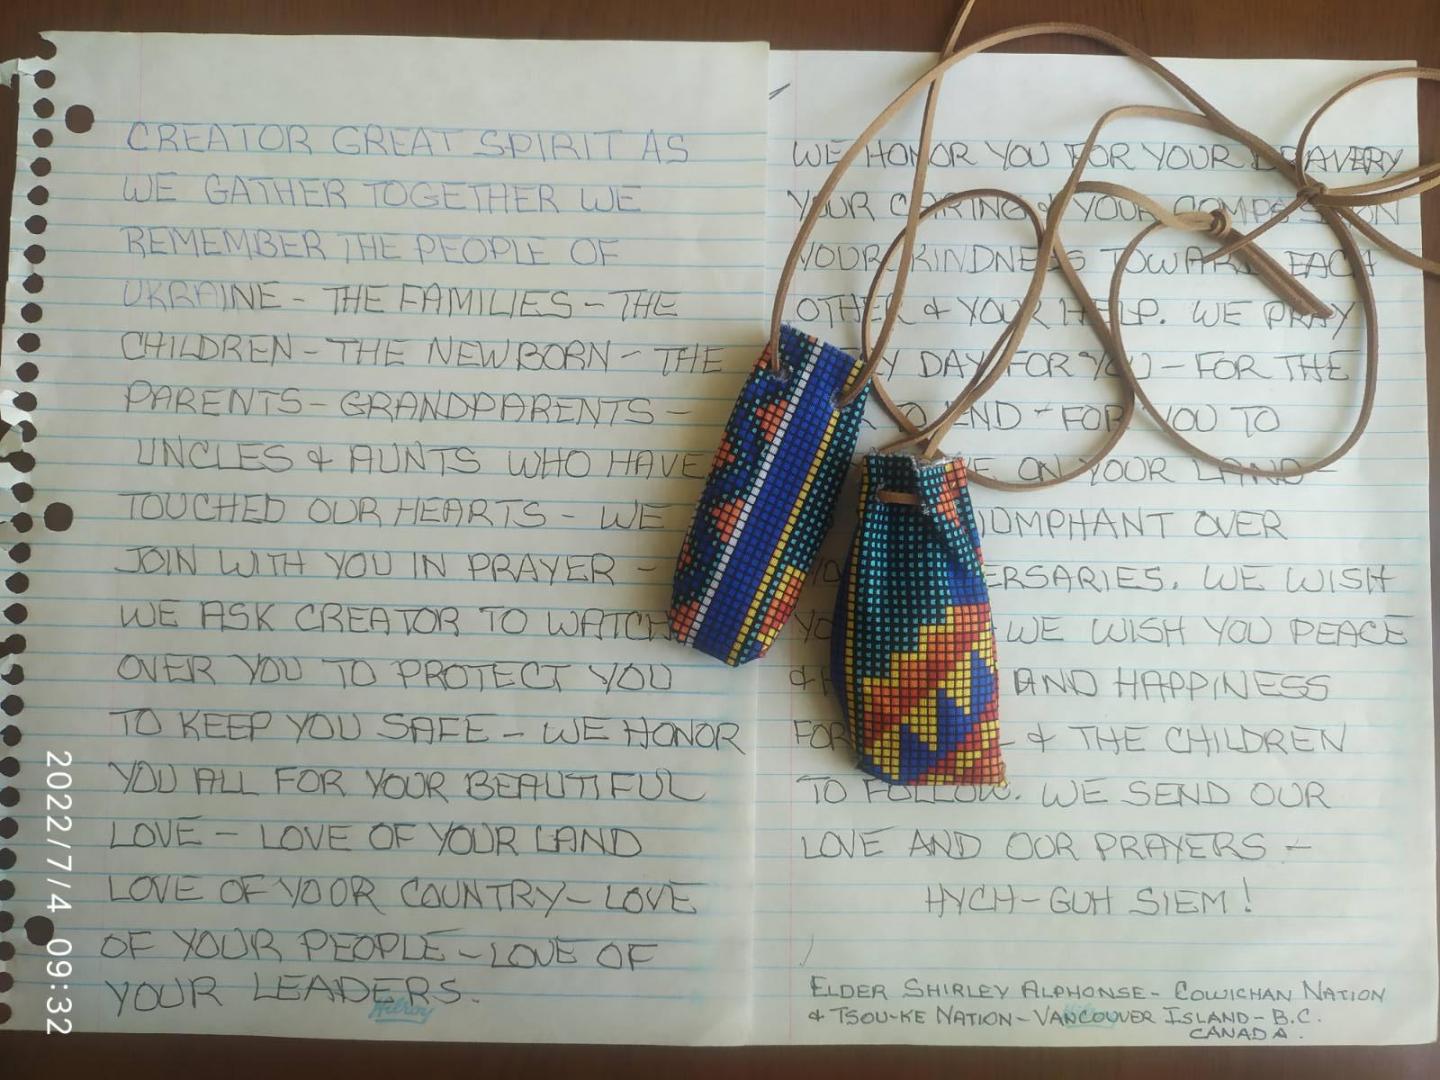 CREATOR GREAT SPIRIT AS
WE GATHER TOGETHER WE
REMEMBER THE PEOPLE OF
UKRAINE - THE FAMILIES - THE
CHILDREN - THE NEWBORN - THE
PARENTS - GRANDPARENTS -
UNCLES & AUNTS WHO HAVE
TOUCHED OUR HEARTS - WE
JOIN WITH YOU IN PRAYER -
WE ASK CREATOR TO WATCH
OVER YOU TO PROTECT YOU
TO KEEP YOU SAFE - WE HONOR
YOU ALL FOR YOUR BEAUTIFUL
LOVE - LOVE OF YOUR LAND
LOVE OF YOUR COUNTRY - LOVE
OF YOUR PEOPLE - LOVE OF
YOUR LEADERS.
Hilroy
WE HONOR YOU FOR YOUR BRAVERY
YOUR CARING & YOUR COMPASSION
YOUR KINDNESS TOWARD EACH
OTHER & YOUR HELP. WE PRAY
DAY FOR YOU - FOR THE
END - FOR YOU TO
ON YOUR LAND -
OVER
WE WISH
WE WISH YOU PEACE
& AND HAPPINESS
FOR & THE CHILDREN
TO FOLLOW. WE SEND OUR
LOVE AND OUR PRAYERS -
HYCH-GUH SIEM!
ELDER SHIRLEY ALPHONSE - COWICHAN NATION
& TSOU-KE NATION - VANCOUVER ISLAND - B.C.
CANADA.
2022/7/4 09:32